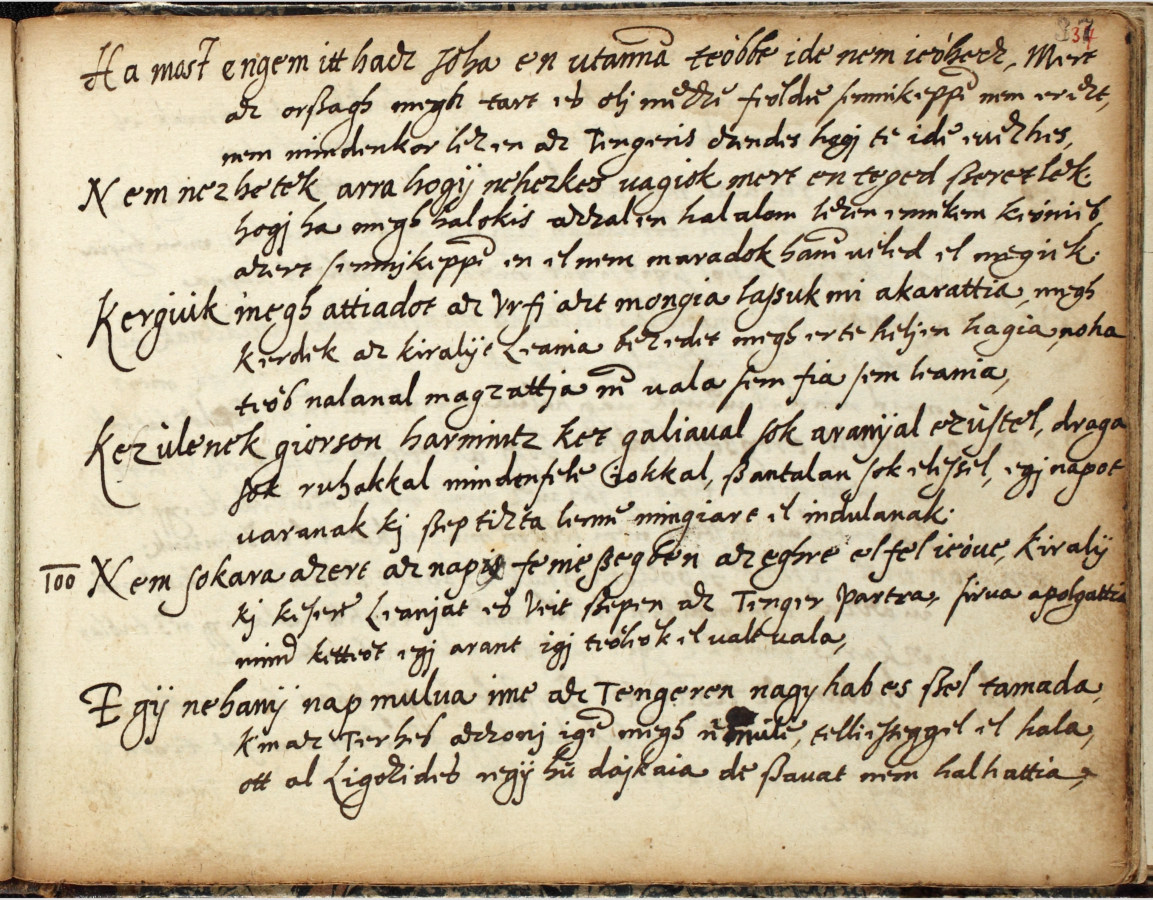 37
34
Ha most engem itt hadz soha en utanna teöbbé ide nem ieöhecz, Mert
az orßagh megh tart es olj meßze feoldre semmikeppē nem erezt,
nem mindenkor lezen az Tengeris czendes hogj te ide euezhes,
Nem nezhetek arra hogij nehezkes vagiok mert en teged ßeretlek
hogj ha megh halokis azzal en halalom lezen ennekem keönieb
azert semmjkeppē en el nem maradok hanē veled el megiek.
Kergiuk megh attiadot az Vrfj azt mongia lassuk mi akarattia, megh
kerdek az kiralijt Leania bezedet megh erte heljen hagia, noha
teöb nalanal magzattja nē vala sem fia sem leania,
Kezülenek giorson harmintz ket galiaual sok aranijal ezüstel, draga
sok ruhakkal mindenfele iokkal, ßantalan sok elessel, egj napot
varanak kj ßeptizta lenne mingiart el indulanak.
100 Nem sokara azert az nap is femießegben az eghre el fel ieöue, kiralij
kj keserte Leanjat es Veit ßepen az Tenger partra, sirua apolgattia
mind ketteöt egj arant igj teölleök el valt vala,
Egij nehanij nap mulua ime az Tengeren nagy hab es ßel tamada,
kin az Terhes azzonj igē megh nemüle, telliesseggel el hala,
ott al Ligozides negij hü dajkaia de ßauat nem halhattia,